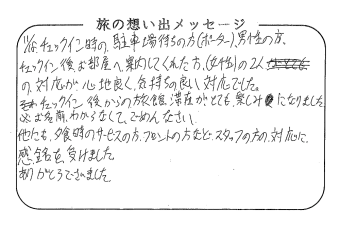 旅の想い出メッセージ
チェックイン時の、駐車場待ちの方(ポーター)、男性の方、
チェックイン後お部屋へ案内してくれた方、(女性)の2人
の対応が心地良く、気持の良い対応でした。
チェックイン後からの旅館滞在がとても、楽しみになりました
お名前、わからなくて、ごめんなさい。
他にも、夕食時のサービスの方、フロントの方など、スタッフの方の対応に、
感銘を受けました
ありがとうございました